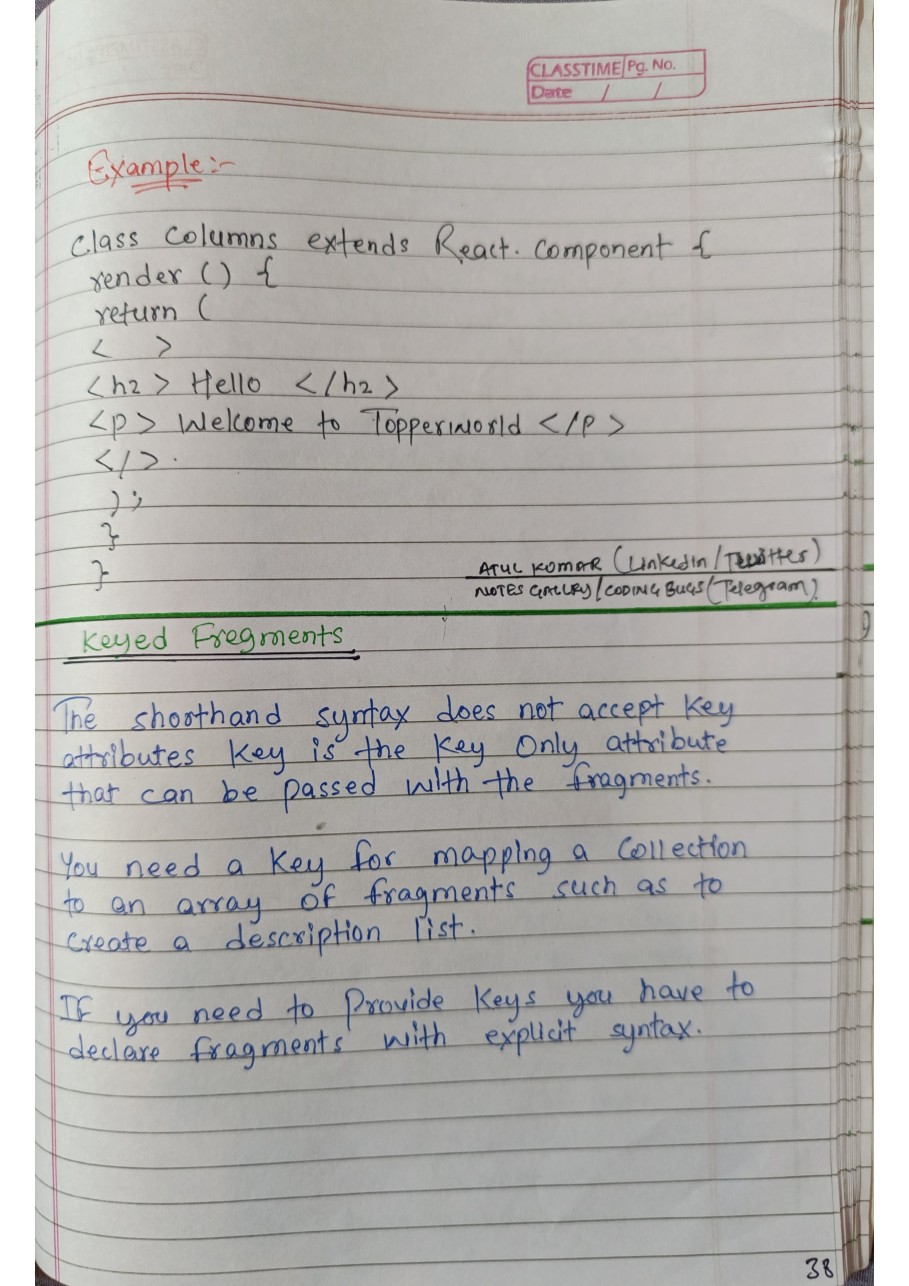 CLASSTIME Pg. No.
Date / /
Example :-
Class Columns extends React. Component {
render () {
return (
< >
<h2> Hello </h2>
<p> Welcome to Topperworld </p>
</>.
);
}
}
ATUL KUMAR (LinkedIn / Twitter)
NOTES GALLRY / CODING BUGS (Telegram)
Keyed Fregments
The shorthand syntax does not accept key
attributes key is the key Only attribute
that can be passed with the fragments.
You need a key for mapping a Collection
to an array of fragments such as to
create a description list.
If you need to Provide Keys you have to
declare fragments with explicit syntax.
38